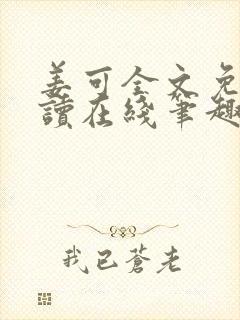 姜可全文免
讀在綫筆趣
我已蒼老